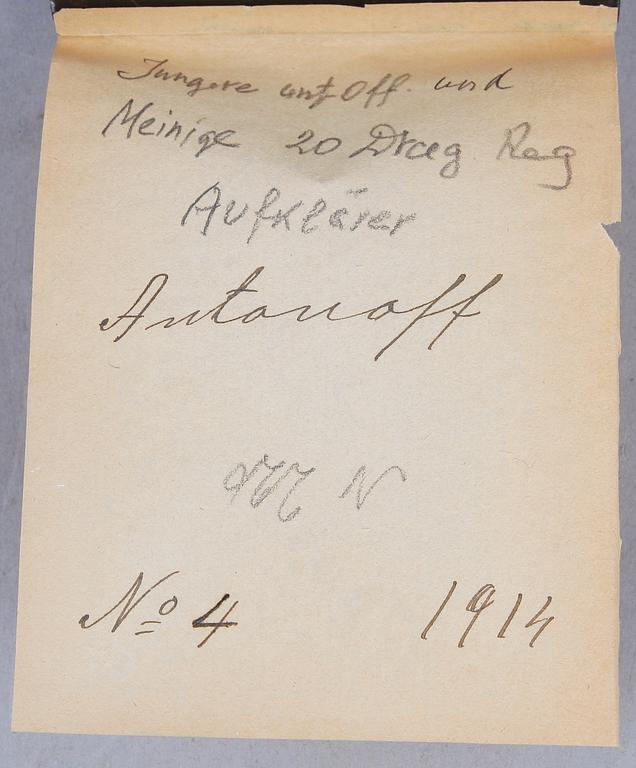 Jungere untOff. und
Meinige 20 Drag Reg
Aufklärer
Antonoff
N
Nº 4 1914